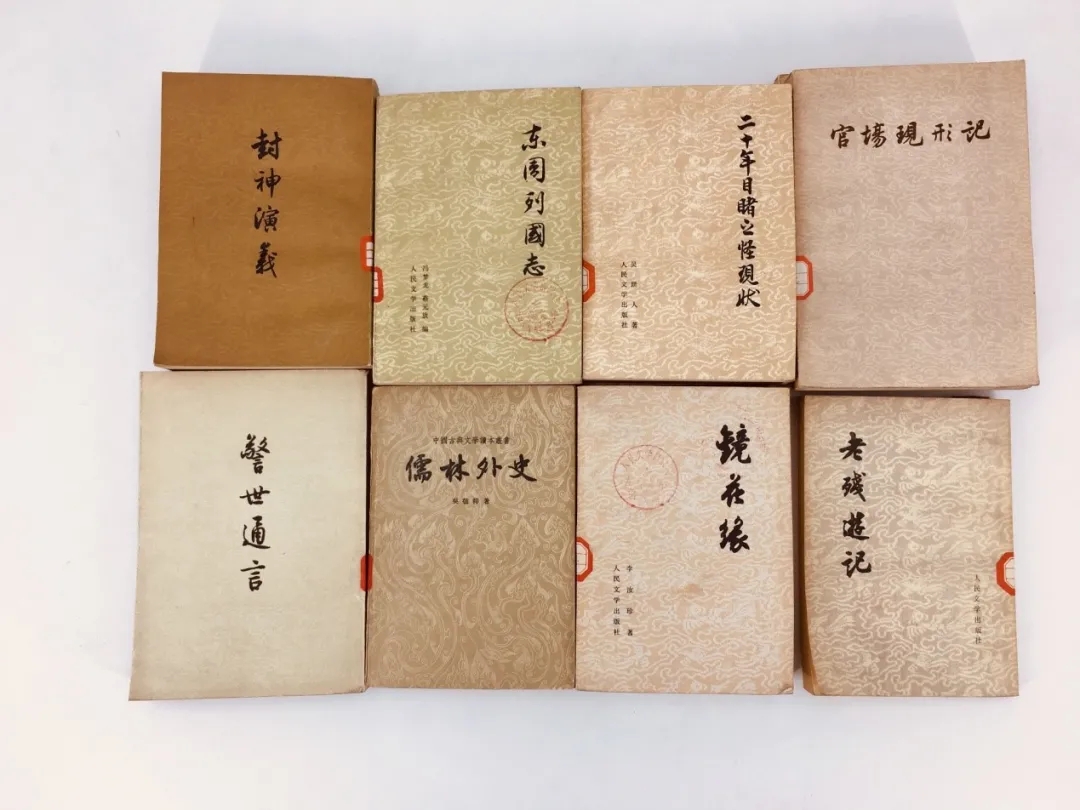 封神演義
东周列國志
冯梦龙 蔡元放 编
人民文学出版社
二十年目睹之怪现状
吴趼人 著
人民文学出版社
官場現形記
警世通言
中國古典文學讀本叢書
儒林外史
吳敬梓著
镜花缘
李汝珍 著
人民文学出版社
老残遊記
人民文学出版社